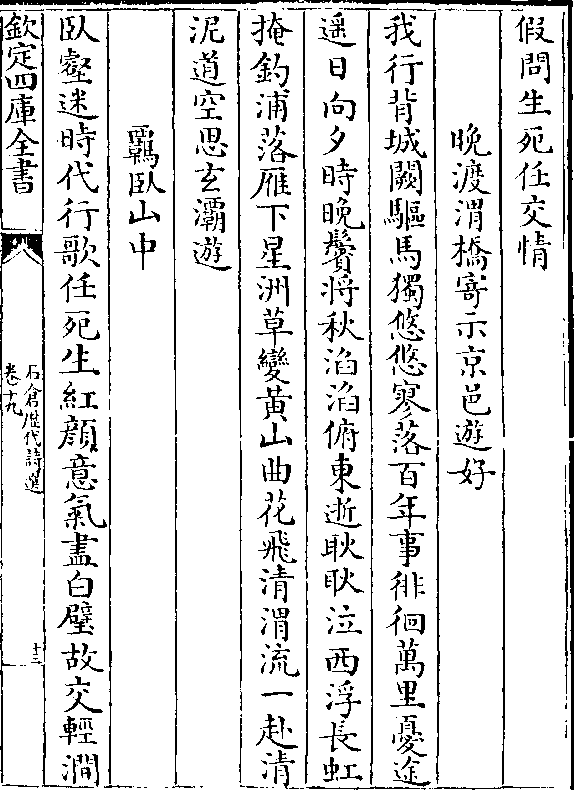 假問生死任交情
晚渡渭橋寄示京邑遊好
我行背城闕驅馬獨悠悠寥落百年事徘徊萬里憂途
遥日向夕時晚鬢將秋滔滔俯東逝耿耿泣西浮長虹
掩釣浦落雁下星洲草變黃山曲花飛清渭流一赴清
泥道空思玄灞遊
羈臥山中
臥壑迷時代行歌任死生紅顏意氣盡白璧故交輕澗
欽定四庫全書
石倉歴代詩選
卷十九
十三